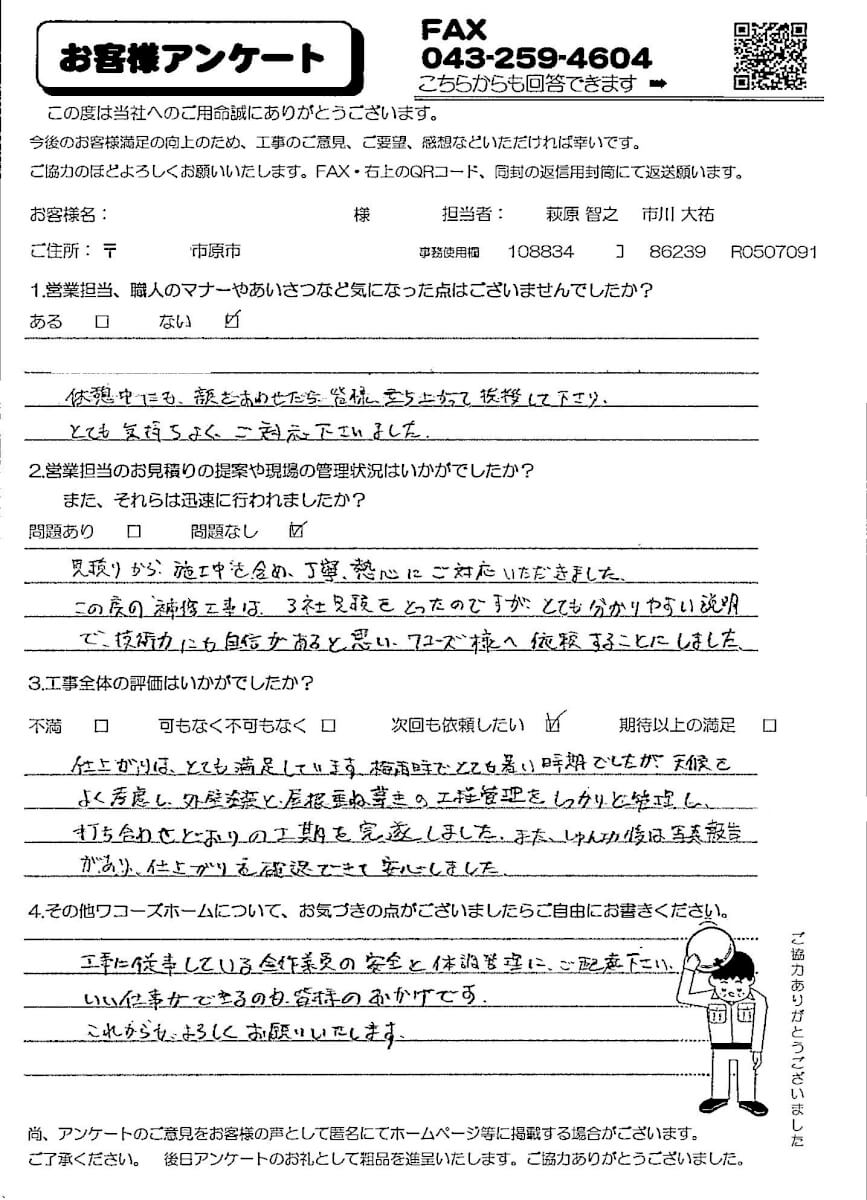 お客様アンケート
FAX
043-259-4604
こちらからも回答できます ➡
この度は当社へのご用命誠にありがとうございます。
今後のお客様満足の向上のため、工事のご意見、ご要望、感想などいただければ幸いです。
ご協力のほどよろしくお願いいたします。FAX・右上のQRコード、同封の返信用封筒にて返送願います。
お客様名： 様 担当者： 萩原 智之 市川 大祐
ご住所：〒 市原市 事務使用欄 108834 ] 86239 R0507091
1.営業担当、職人のマナーやあいさつなど気になった点はございませんでしたか？
ある □ ない ☑
休憩中にも、顔をあわせたら皆様立ち上がって挨拶して下さり、
とても気持ちよく、ご対応下さいました。
2.営業担当のお見積りの提案や現場の管理状況はいかがでしたか？
また、それらは迅速に行われましたか？
問題あり □ 問題なし ☑
見積りから施工中も含め、丁寧、熱心にご対応いただきました。
この度の補修工事は、3社見積をとったのですが、とても分かりやすい説明
で、技術力にも自信があると思い、ワコーズ様へ依頼することにしました。
3.工事全体の評価はいかがでしたか？
不満 □ 可もなく不可もなく □ 次回も依頼したい ☑ 期待以上の満足 □
仕上がりは、とても満足しています。梅雨時でとても暑い時期でしたが、天候を
よく考慮し、外壁塗装と屋根重ね葺きの工程管理をしっかりと管理し、
打ち合わせどおりの工期を完遂しました。また、しゅん功後は写真報告
があり、仕上がりも確認できて安心しました。
4.その他ワコーズホームについて、お気づきの点がございましたらご自由にお書きください。
工事に従事している全作業員の安全と体調管理に、ご配意下さい。
いい仕事ができるのも皆様のおかげです。
これからも、よろしくお願いいたします。
ご協力ありがとうございました
尚、アンケートのご意見をお客様の声として匿名にてホームページ等に掲載する場合がございます。
ご了承ください。 後日アンケートのお礼として粗品を進呈いたします。ご協力ありがとうございました。